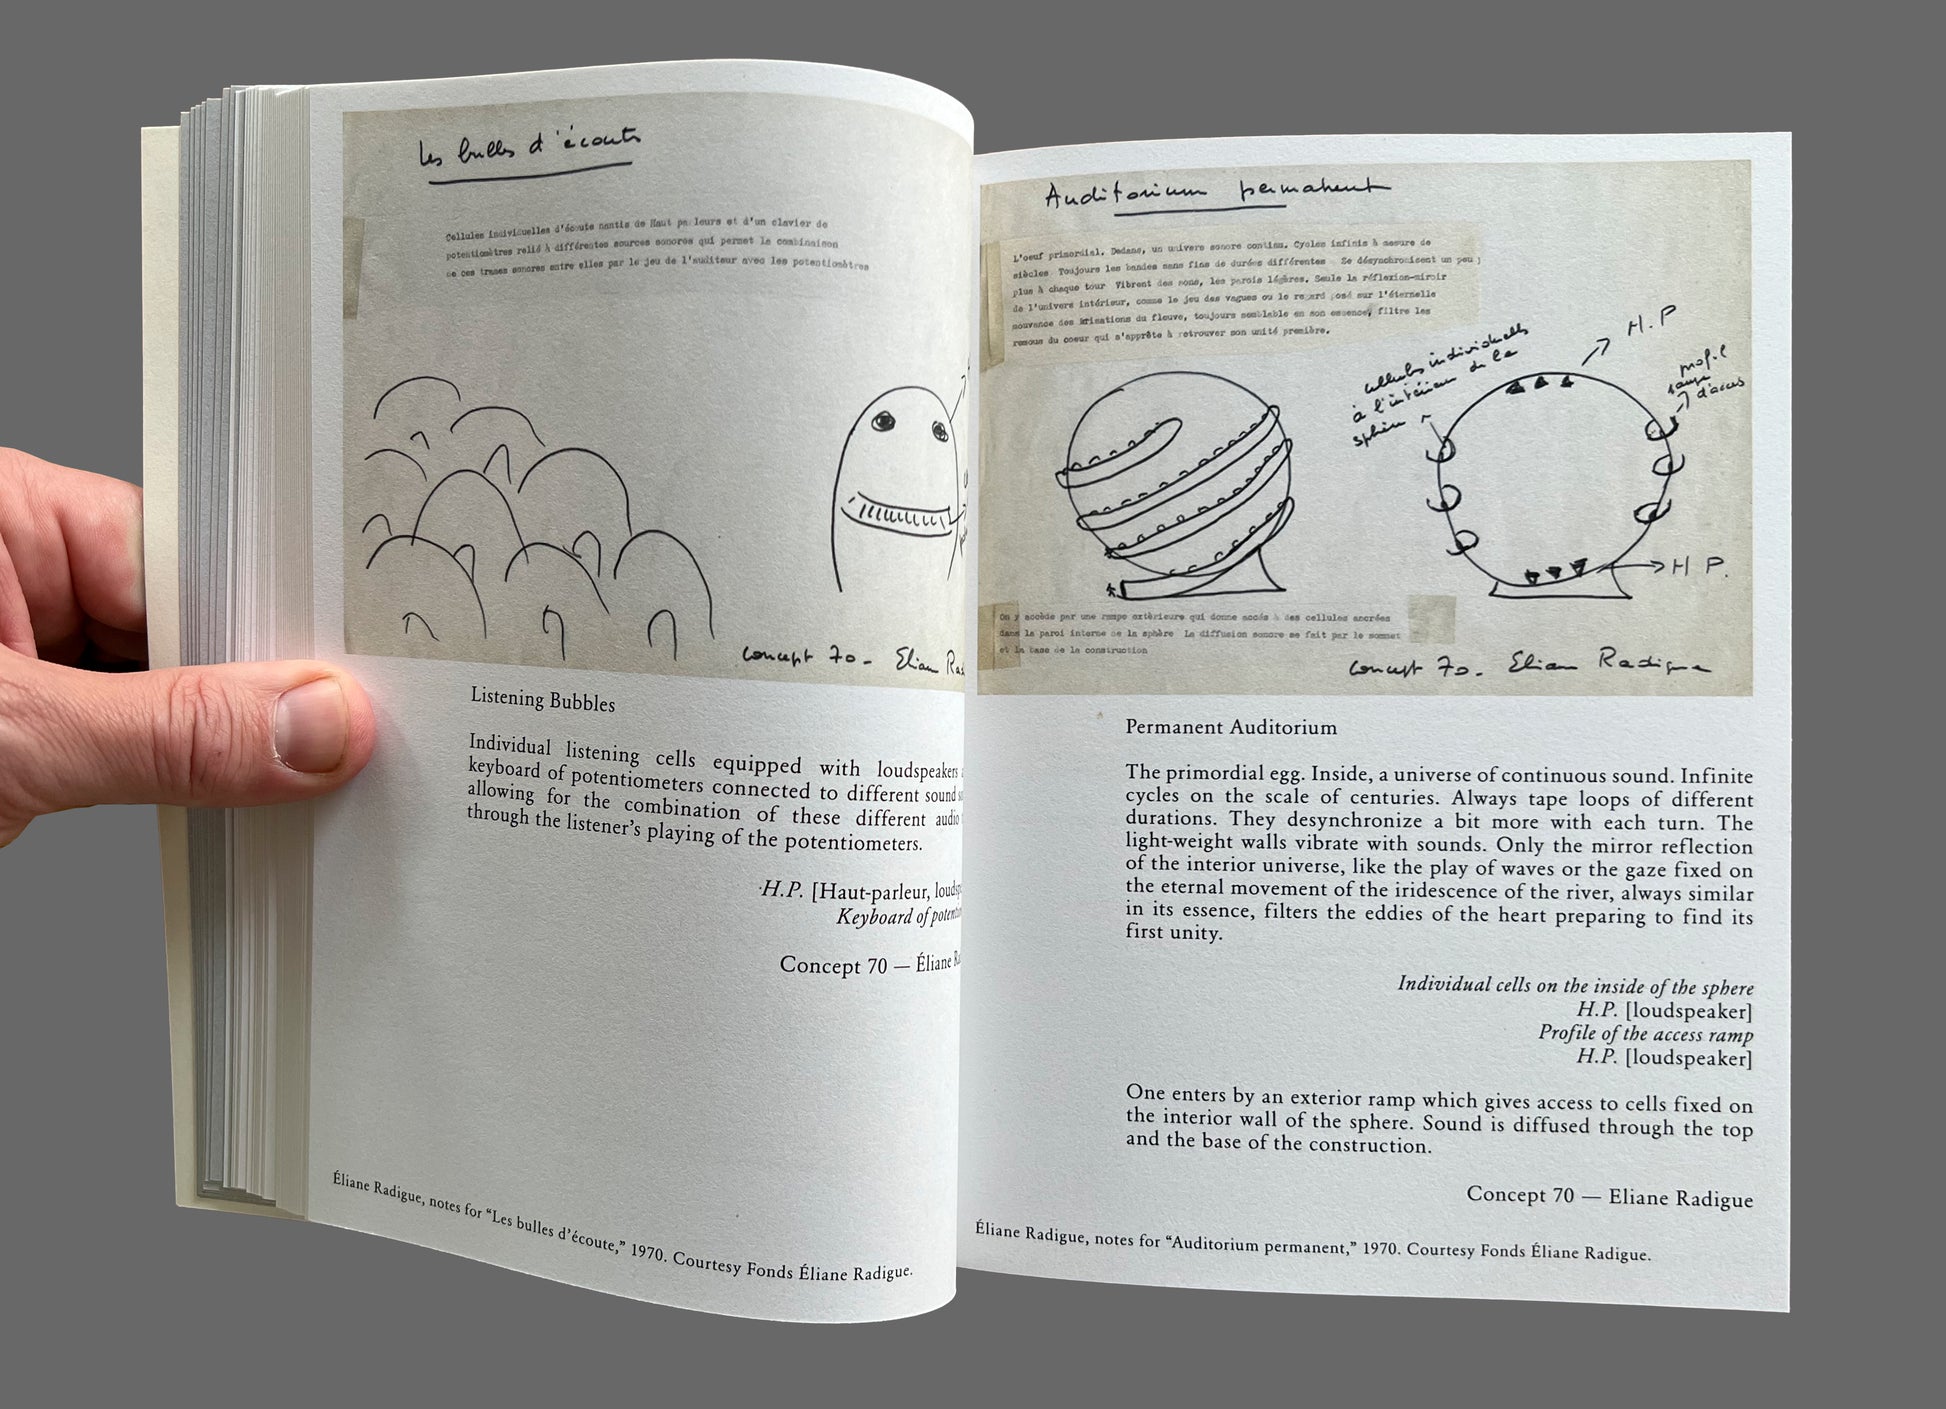 Les bulles d'écoute
Cellules individuelles d'écoute nantis de Haut parleurs et d'un clavier de
potentiomètres relié à différentes sources sonores qui permet la combinaison
de ces trames sonores entre elles par le jeu de l'auditeur avec les potentiomètres
concept 70 - Eliane Ra
Listening Bubbles
Individual listening cells equipped with loudspeakers
keyboard of potentiometers connected to different sound
allowing for the combination of these different audio
through the listener's playing of the potentiometers.
H.P. [Haut-parleur, loudsp
Keyboard of potent
Concept 70 — Éliane Ra
Éliane Radigue, notes for “Les bulles d’écoute,” 1970. Courtesy Fonds Éliane Radigue.
Auditorium permanent
L'oeuf primordial. Dedans, un univers sonore continu. Cycles infinis à mesure de
siècles. Toujours les bandes sans fins de durées différentes. Se désynchronisent un peu
plus à chaque tour. Vibrent des sons, les parois légères. Seule la réflexion-miroir
de l'univers intérieur, comme le jeu des vagues ou le regard posé sur l'éternelle
mouvance des irisations du fleuve, toujours semblable en son essence, filtre les
remous du coeur qui s'apprête à retrouver son unité première.
cellules individuelles
à l'intérieur de la
sphère
H.P
profil
rampe
d'accès
H P.
On y accède par une rampe extérieure qui donne accés à des cellules ancrées
dans la paroi interne de la sphère. La diffusion sonore se fait par le sommet
et la base de la construction
concept 70 - Eliane Radigue
Permanent Auditorium
The primordial egg. Inside, a universe of continuous sound. Infinite
cycles on the scale of centuries. Always tape loops of different
durations. They desynchronize a bit more with each turn. The
light-weight walls vibrate with sounds. Only the mirror reflection
of the interior universe, like the play of waves or the gaze fixed on
the eternal movement of the iridescence of the river, always similar
in its essence, filters the eddies of the heart preparing to find its
first unity.
Individual cells on the inside of the sphere
H.P. [loudspeaker]
Profile of the access ramp
H.P. [loudspeaker]
One enters by an exterior ramp which gives access to cells fixed on
the interior wall of the sphere. Sound is diffused through the top
and the base of the construction.
Concept 70 — Eliane Radigue
Éliane Radigue, notes for “Auditorium permanent,” 1970. Courtesy Fonds Éliane Radigue.